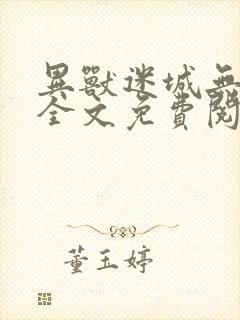 異獸迷城無
全文免費閱
董玉婷